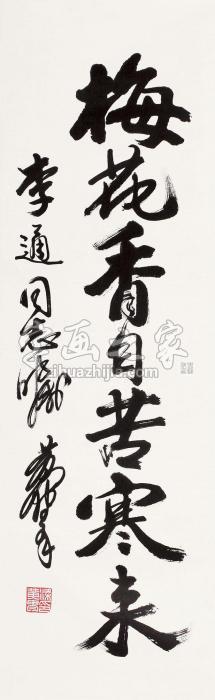 梅花香自苦寒来
李通同志嘱
字画之家
zihuazhijia.com